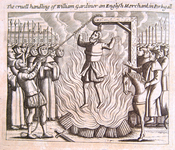 The cruell handling of William Gardiner an English Merchant, in Portugall